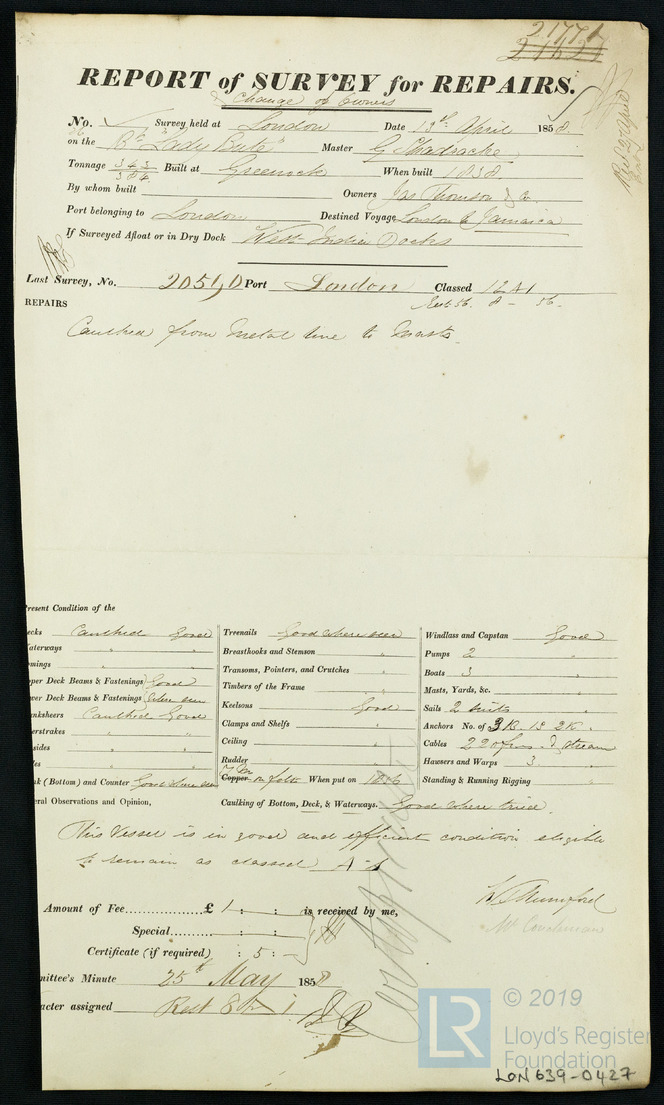 21771
REPORT of SURVEY for REPAIRS.
& Change of Owners
No. Survey held at London Date 13th April 1858
on the Bk "Lady Bute" Master G Shadracke
Tonnage 343 / 384 Built at Greenock When built 1838
By whom built Owners Jas Thomson & Co
Port belonging to London Destined Voyage London to Jamaica
If Surveyed Afloat or in Dry Dock West India Docks
Last Survey, No. Port London Classed 12 A1
Rest. 56. 8 - 56 -
REPAIRS
Caulked from Metal line to Masts.
resent Condition of the
ecks Caulked Good
aterways " "
omings " "
pper Deck Beams & Fastenings Good
wer Deck Beams & Fastenings where seen
anksheers Caulked Good
erstrakes " "
sides " "
les " "
nk (Bottom) and Counter Good where seen
eral Observations and Opinion,
Treenails Good where seen
Breasthooks and Stemson
Transoms, Pointers, and Crutches
Timbers of the Frame
Keelsons Good
Clamps and Shelfs
Ceiling
Rudder
Copper on felt When put on 1856
Caulking of Bottom, Deck, & Waterways. Good where tried.
Windlass and Capstan Good
Pumps 2
Boats 3
Masts, Yards, &c.
Sails 2 suits
Anchors No. of 3 B. 1 S 2 K.
Cables 220 fms & stream
Hawsers and Warps 3
Standing & Running Rigging
This Vessel is in good and efficient condition eligible
to remain as classed A-1
Amount of Fee............... £ 1 : : is received by me,
Special.......... : :
Certificate (if required) : 5 : -
W Mumford
mittee's Minute 25th May 1858
acter assigned Rest 8 A 1
© 2019
LR
Lloyd's Register
Foundation
LON 639-0427